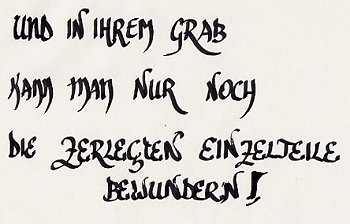 UND IN IHREM GRAB
KANN MAN NUR NOCH
DIE ZERLEGTEN EINZELTEILE
BEWUNDERN!